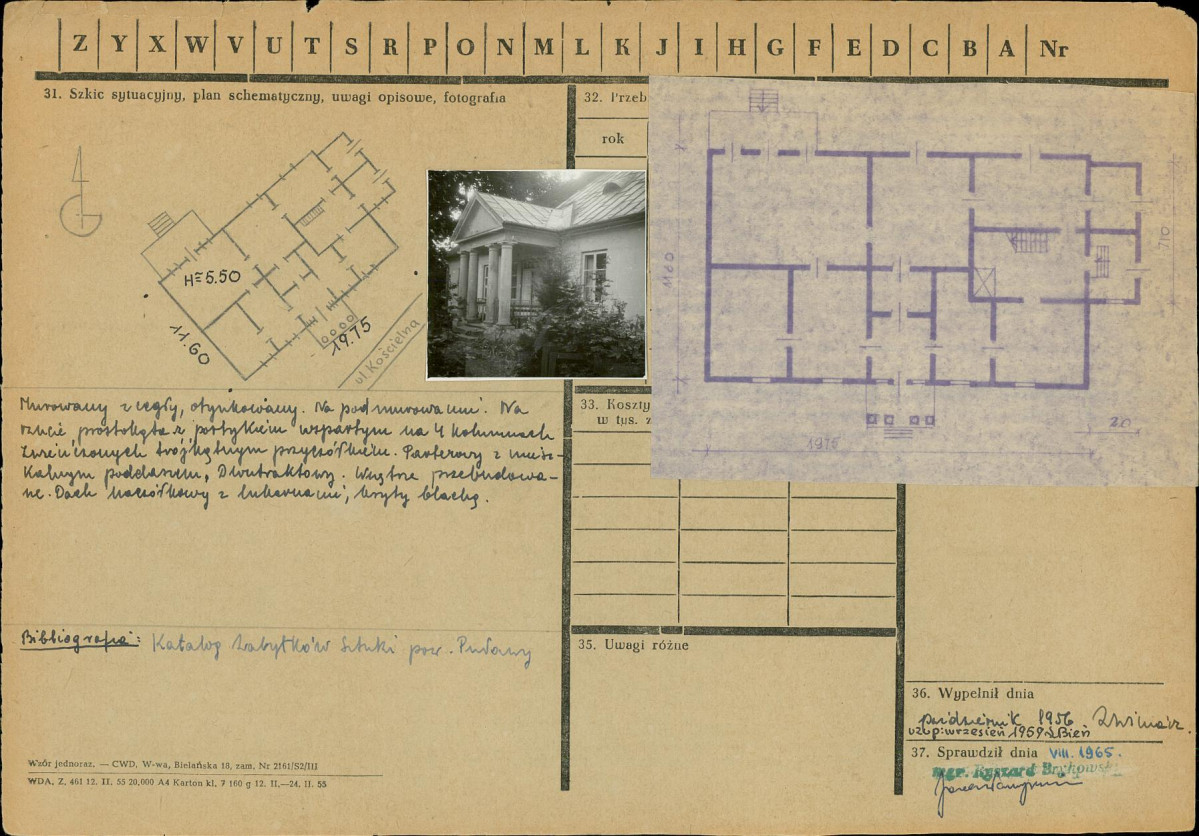 Z Y X W V U T S R P O N M L K J I H G F E D C B A Nr
31. Szkic sytuacyjny, plan schematyczny, uwagi opisowe, fotografia
H=5.50
11.60
19.75
ul. Kościelna
Murowany z cegły, otynkowany. Na podmurowaniu. Na
rzucie prostokąta z portykiem wspartym na 4 kolumnach
zwieńczonych trójkątnym przyczółkiem. Parterowy z miesz-
kalnym poddaszem, Dwutraktowy. Wnętrze przebudowa-
ne. Dach naczółkowy z lukarnami, kryty blachą.
Bibliografia: Katalog Zabytków Sztuki pow. Puławy
Wzór jednoraz. — CWD, W-wa, Bielańska 18, zam. Nr 2161/S2/III
WDA, Z. 461 12. II. 55 20.000 A4 Karton kl. 7 160 g 12. II.—24. II. 55
32. Przeb
rok
1160
710
1975
20
33. Koszty
w tys. z
35. Uwagi różne
36. Wypełnił dnia
październik 1956
uzup: wrzesień 1959 Bień
37. Sprawdził dnia VIII. 1965.
mgr. Ryszard Brykowski